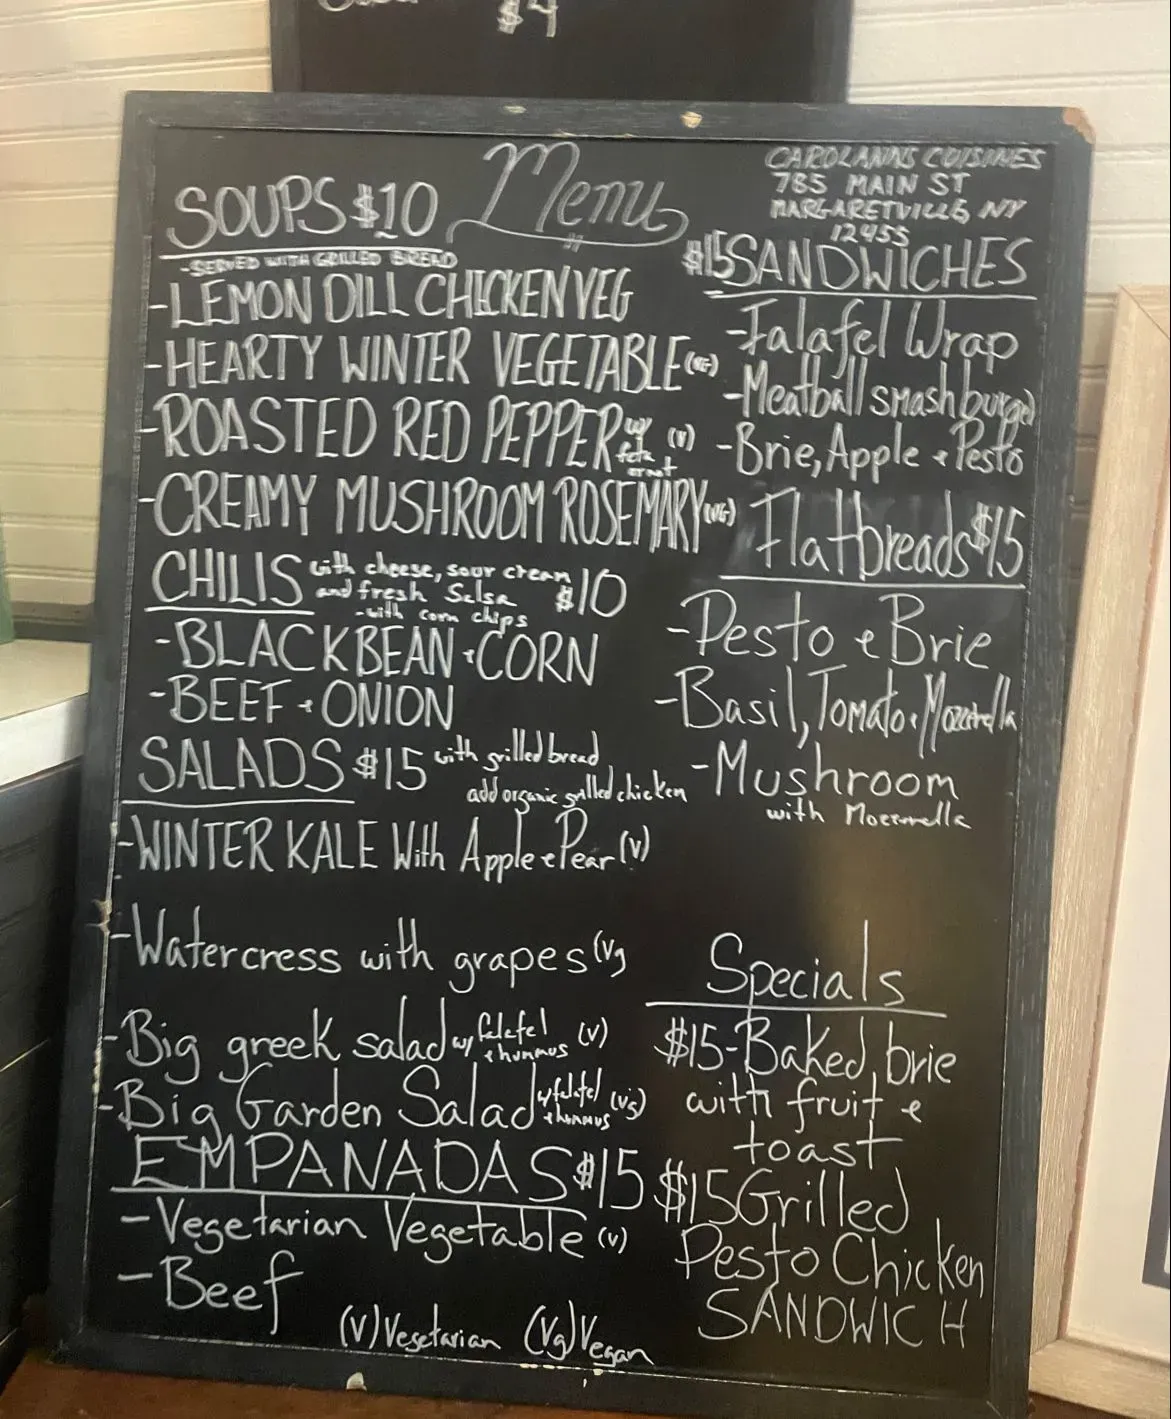 $4
Menu
CAROLANNS CUISINES
785 MAIN ST
MARGARETVILLE, NY
12455
SOUPS $10
-SERVED WITH GRILLED BREAD
-LEMON DILL CHICKEN VEG
-HEARTY WINTER VEGETABLE (VG)
-ROASTED RED PEPPER w/ feta (V)
-CREAMY MUSHROOM ROSEMARY (VG)
CHILIS with cheese, sour cream $10
and fresh Salsa
-with corn chips
-BLACKBEAN + CORN
-BEEF + ONION
SALADS $15 with grilled bread
add organic grilled chicken
-WINTER KALE With Apple + Pear (V)
-Watercress with grapes (Vg
-Big greek salad w/ falafel + hummus (V)
-Big Garden Salad w/ falafel + hummus (Vg)
EMPANADAS $15
-Vegetarian Vegetable (V)
-Beef
(V) Vegetarian (Vg) Vegan
$15 SANDWICHES
-Falafel Wrap
-Meatball smashburger
-Brie, Apple + Pesto
Flatbreads $15
-Pesto + Brie
-Basil, Tomato + Mozzarella
-Mushroom
with Mozzarella
Specials
$15-Baked brie
with fruit +
toast
$15 Grilled
Pesto Chicken
SANDWICH